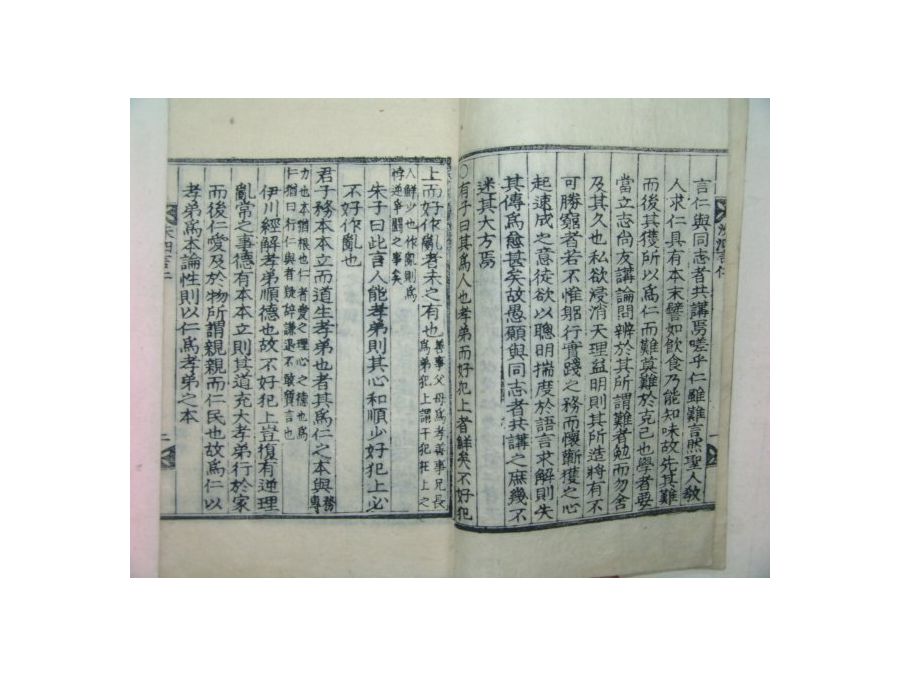 言仁與同志者共講焉嗟乎仁雖難言然聖人敎
人求仁具有本末譬如飮食乃能知味故先其難
而後其獲所以爲仁而難莫難於克己也學者要
當立志尚友講論問辨於其所謂難者勉而勿舍
及其久也私欲浸消天理益明則其所造將有不
可勝窮者若不惟躬行實踐之務而懷蘄獲之心
起速成之意徒欲以聰明揣度於語言求解則失
其傳爲愈甚矣故愚願與同志者共講之庶幾不
迷其大方焉
○有子曰其爲人也孝弟而好犯上者鮮矣不好犯
上而好作亂者未之有也善事父母爲孝善事兄長爲弟犯上謂干犯在上之
人鮮少也作亂則爲悖逆爭鬪之事矣
朱子曰此言人能孝弟則其心和順少好犯上必
不好作亂也
君子務本本立而道生孝弟也者其爲仁之本與務專
力也本猶根也仁者愛之理心之德也爲仁猶曰行仁與者疑辭謙退不敢質言也
伊川經解孝弟順德也故不好犯上豈復有逆理
亂常之事德有本本立則其道充大孝弟行於家
而後仁愛及於物所謂親親而仁民也故爲仁以
孝弟爲本論性則以仁爲孝弟之本
洙泗言仁
二